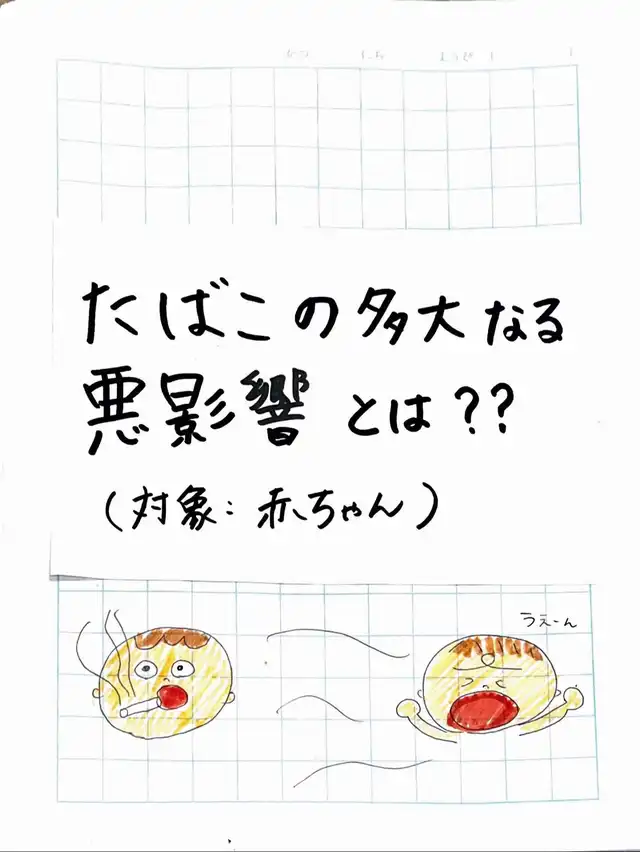 たばこの多大なる
悪影響とは??
(対象:赤ちゃん)
うえーん